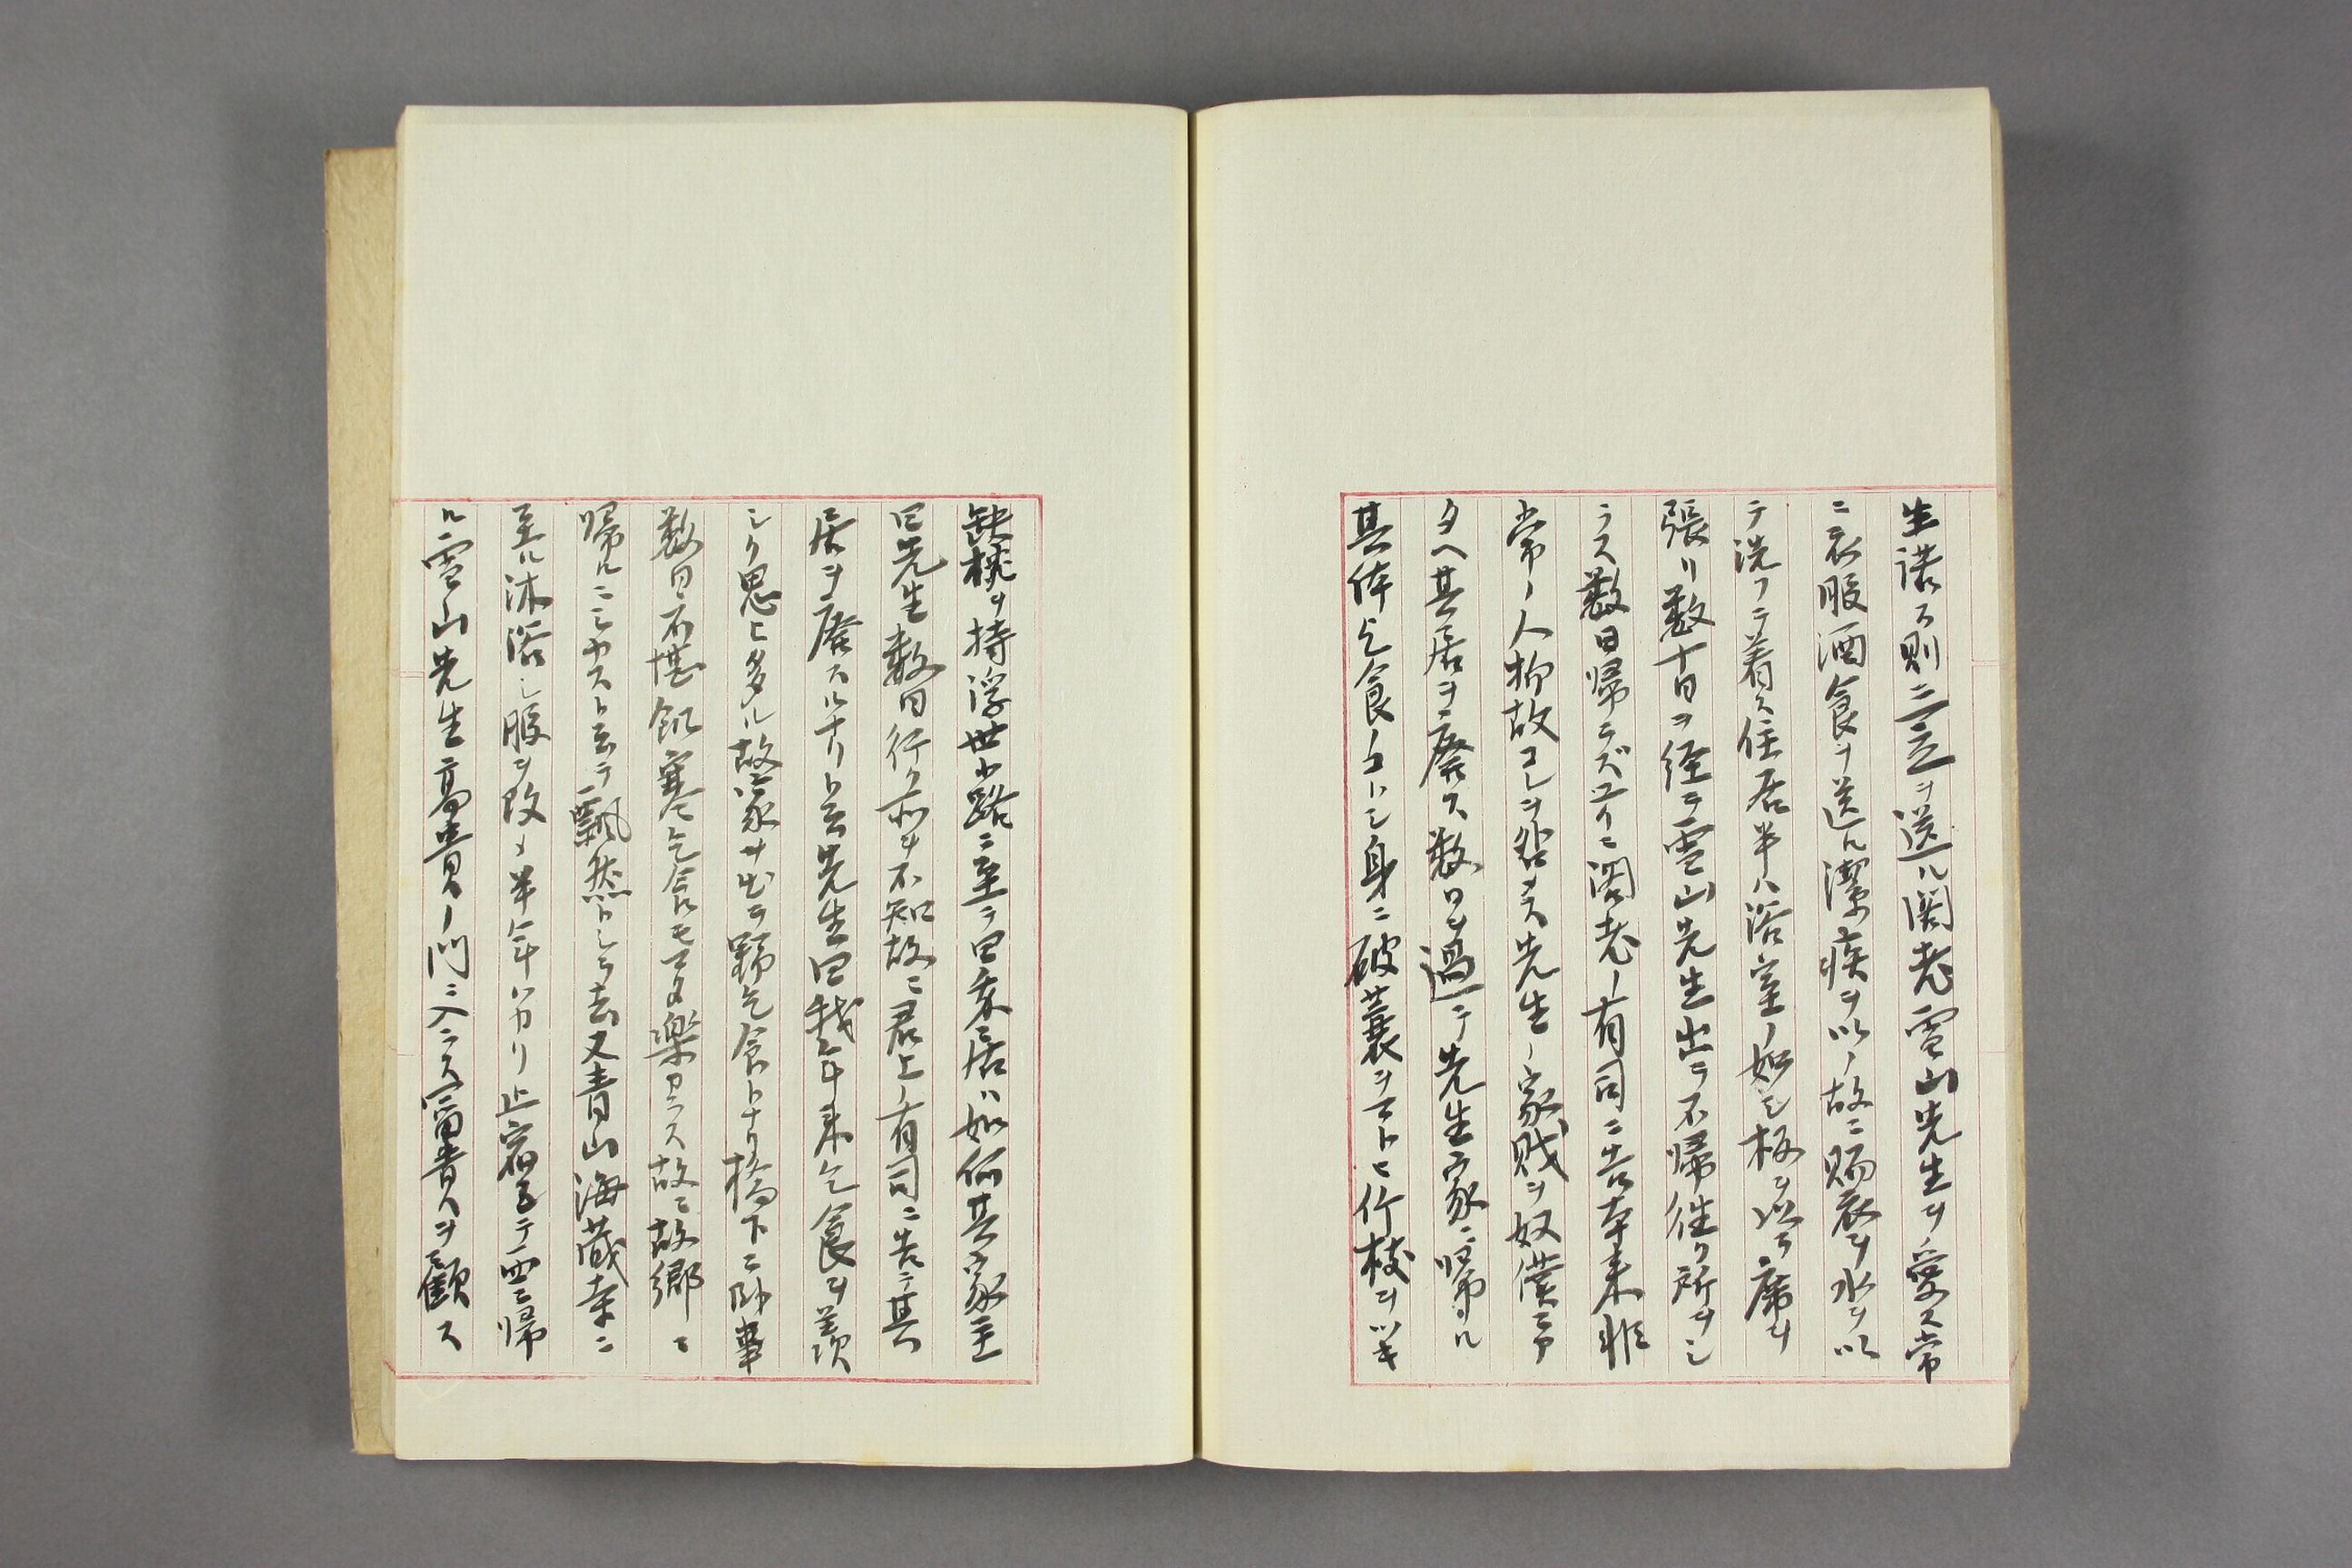 生諾ス則ニ三立ヲ送ル閣老雪山先生ヲ愛ス常
ニ衣服酒食ヲ送ル潔疾ヲ以ノ故ニ賜衣ヲ水ヲ以
テ洗フテ着ス住居半ハ浴室ノ如シ板ヲ以テ席ヲ
張リ数十日ヲ経テ雪山先生出テ不帰往ク所ヲシ
ラス数日帰ラズユイニ閣老ノ有司ニ告本来非
常ノ人柳故コレヲ咎メス先生ノ家賊ヲ奴僕ニア
タヘ其居ヲ廃ス数日ヲ過テ先生家ニ帰ル
其体乞食ノコトシ身ニ破蓑ヲマトヒ竹枝ヲツキ
缺椀ヲ持浮世小路ニ至テ曰吾居ハ如何其家主
曰先生数日行ク所ヲ不知故ニ君上ノ有司ニ告テ其
居ヲ廃スルナリト云先生曰我年来乞食ヲ羨
シク思ヒタル故家ヲ出テ野乞食トナリ橋下ニ臥事
数日不堪飢寒乞食モマタ楽カラス故ニ故郷ニ
帰ルニシカストテ飄然トシテ去又青山海蔵寺ニ
至ル沐浴シ服ヲ改メ半年ハカリ止宿シテ西ニ帰
ル雪山先生高貴ノ門ニ入ラス富貴人ヲ観ス